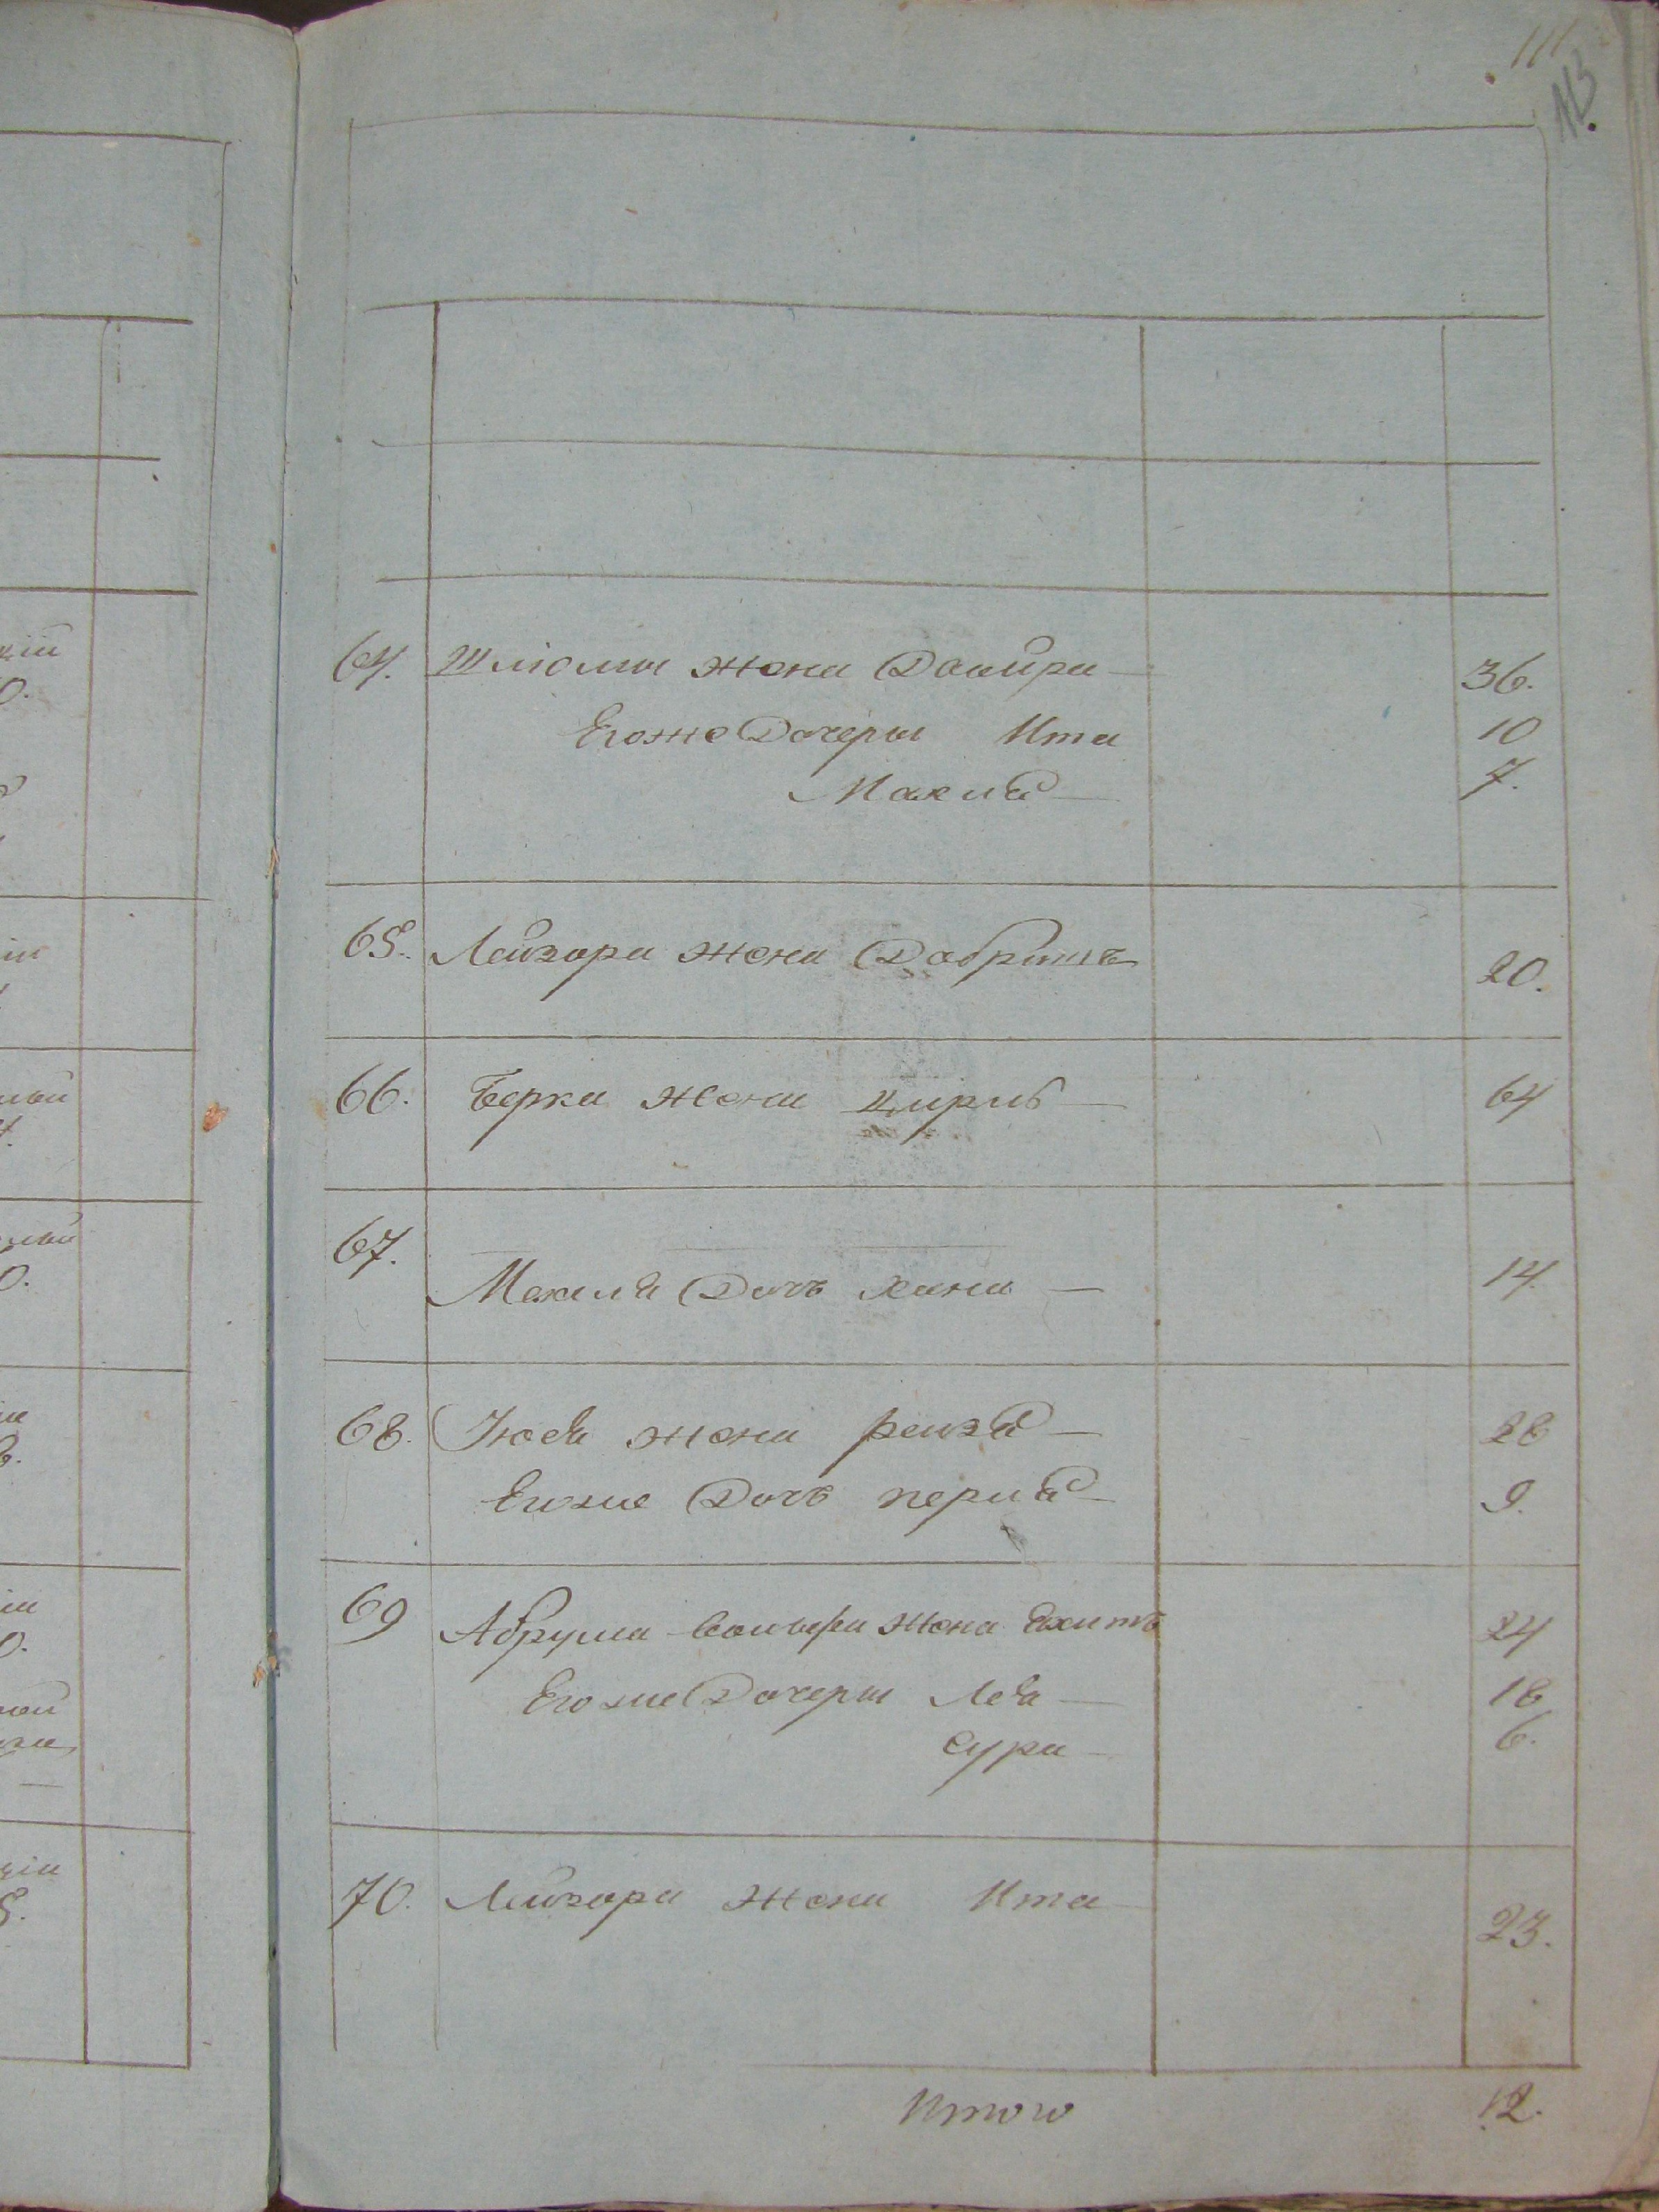 111
113
64. Шліомы жена Двойра 36.
Егоже Дочеры Ита 10
Махля 7.
65. Лейзора жена Добришъ 20.
66. Берка жена Цирль 64
67.
Мехиля Дочь хана 14.
68. Іося жена рейзя 28
Егоже Дочь перля 9.
69 Абрума жена 24
Егоже Дочеры Лея 18
Сура 6.
70. Лейзора жена Ита 23.
Итого 12.